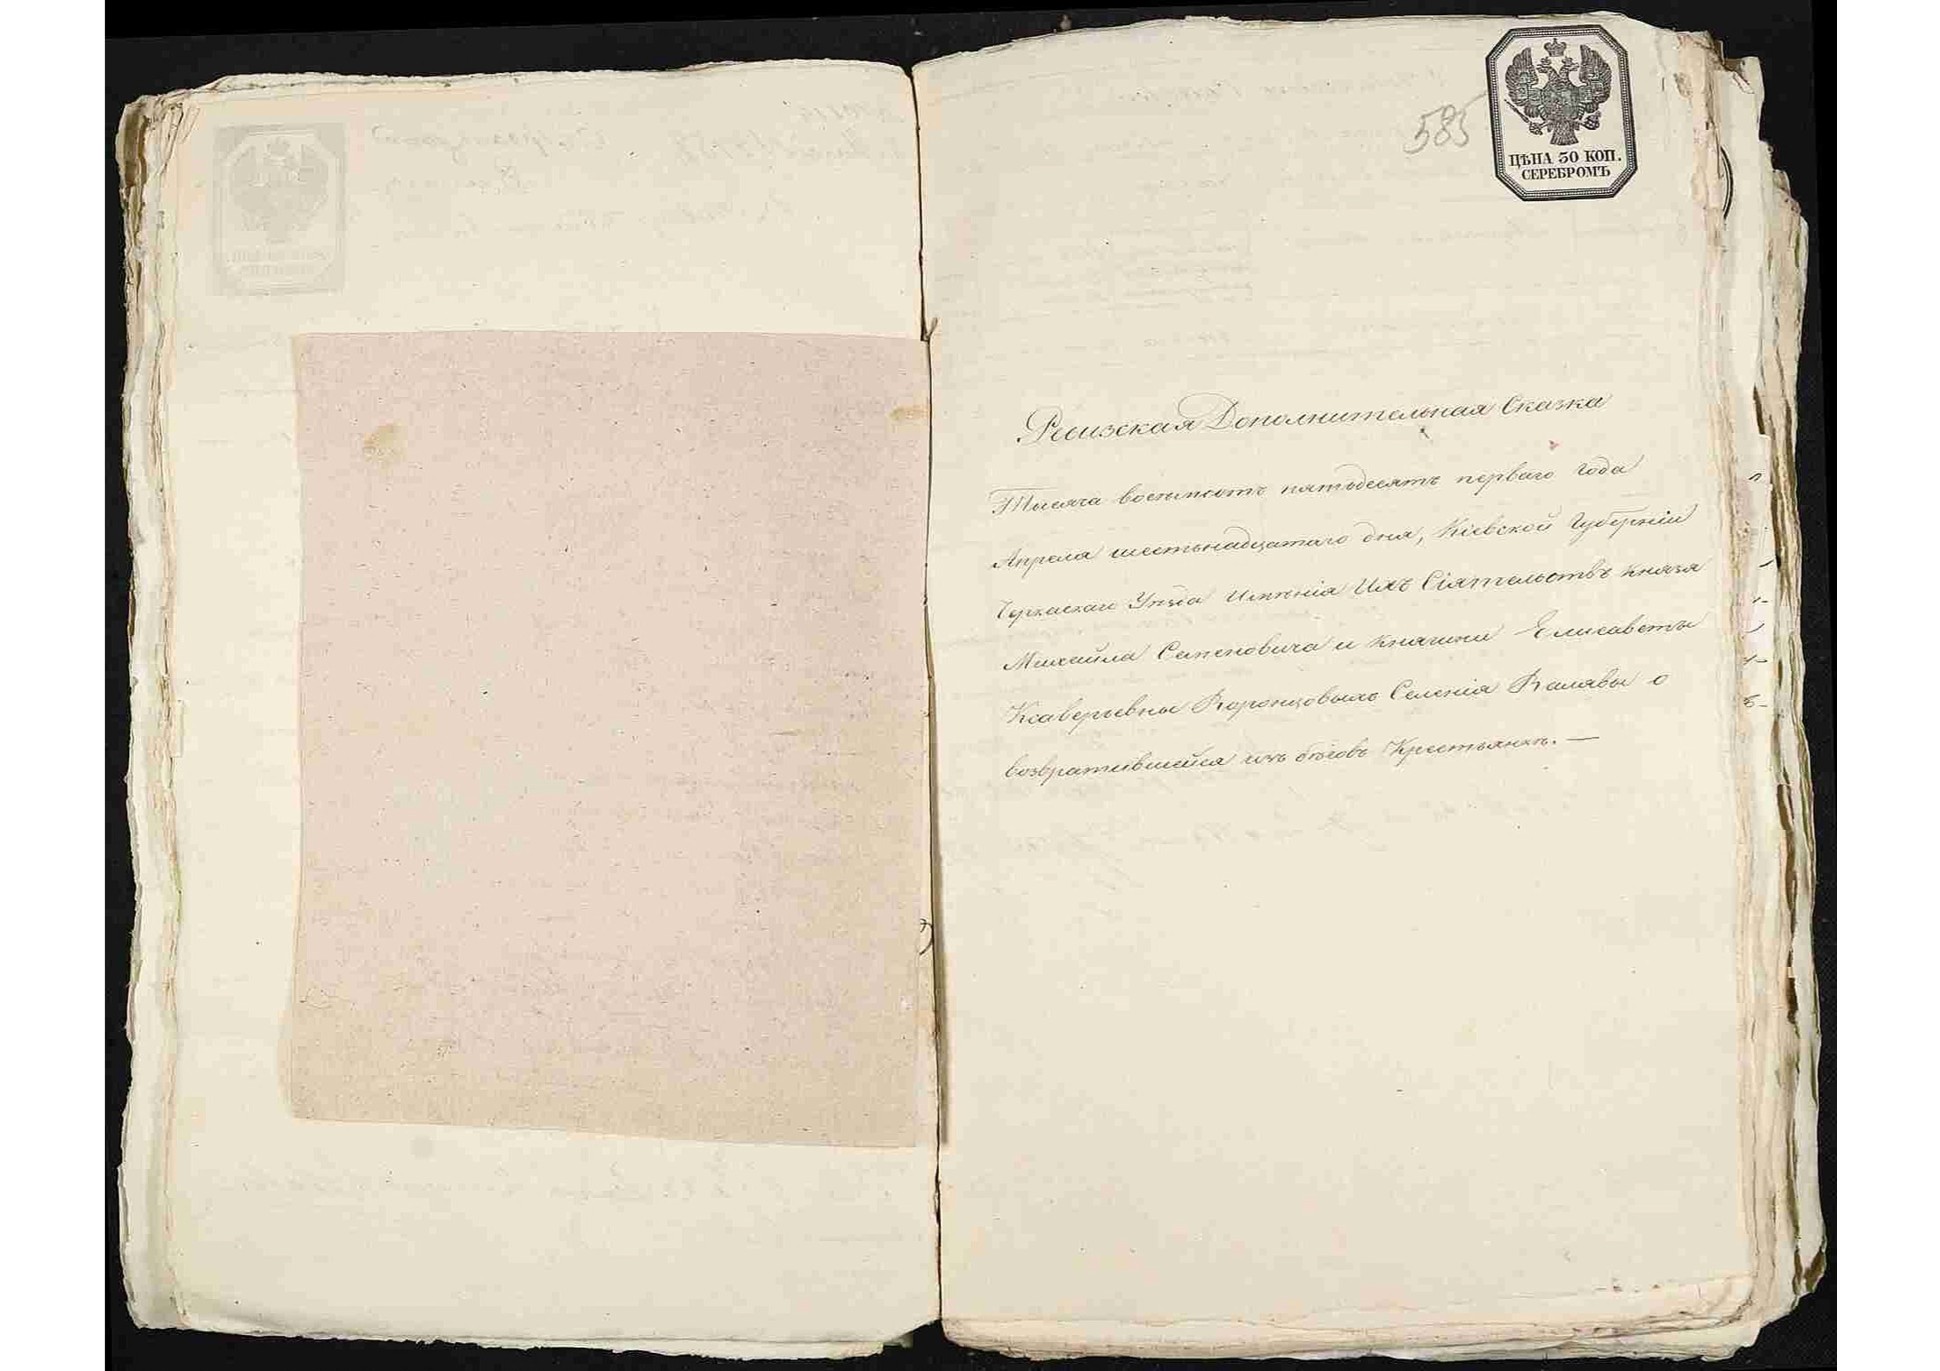 585
ЦѢНА 30 КОП.
СЕРЕБРОМЪ
Ревизская Дополнительная Сказка
Тысяча восемьсотъ пятьдесятъ перваго года
Апреля шестьнадцатаго дня, Кіевской Губерніи
Черкаскаго Уѣзда Имѣнія Ихъ Сіятельствъ князя
Михайла Семеновича и княгини Елисаветы
Ксаверьевны Воронцовыхъ Селенія Валявы о
возвратившейся изъ бѣговъ Крестьянкѣ. —